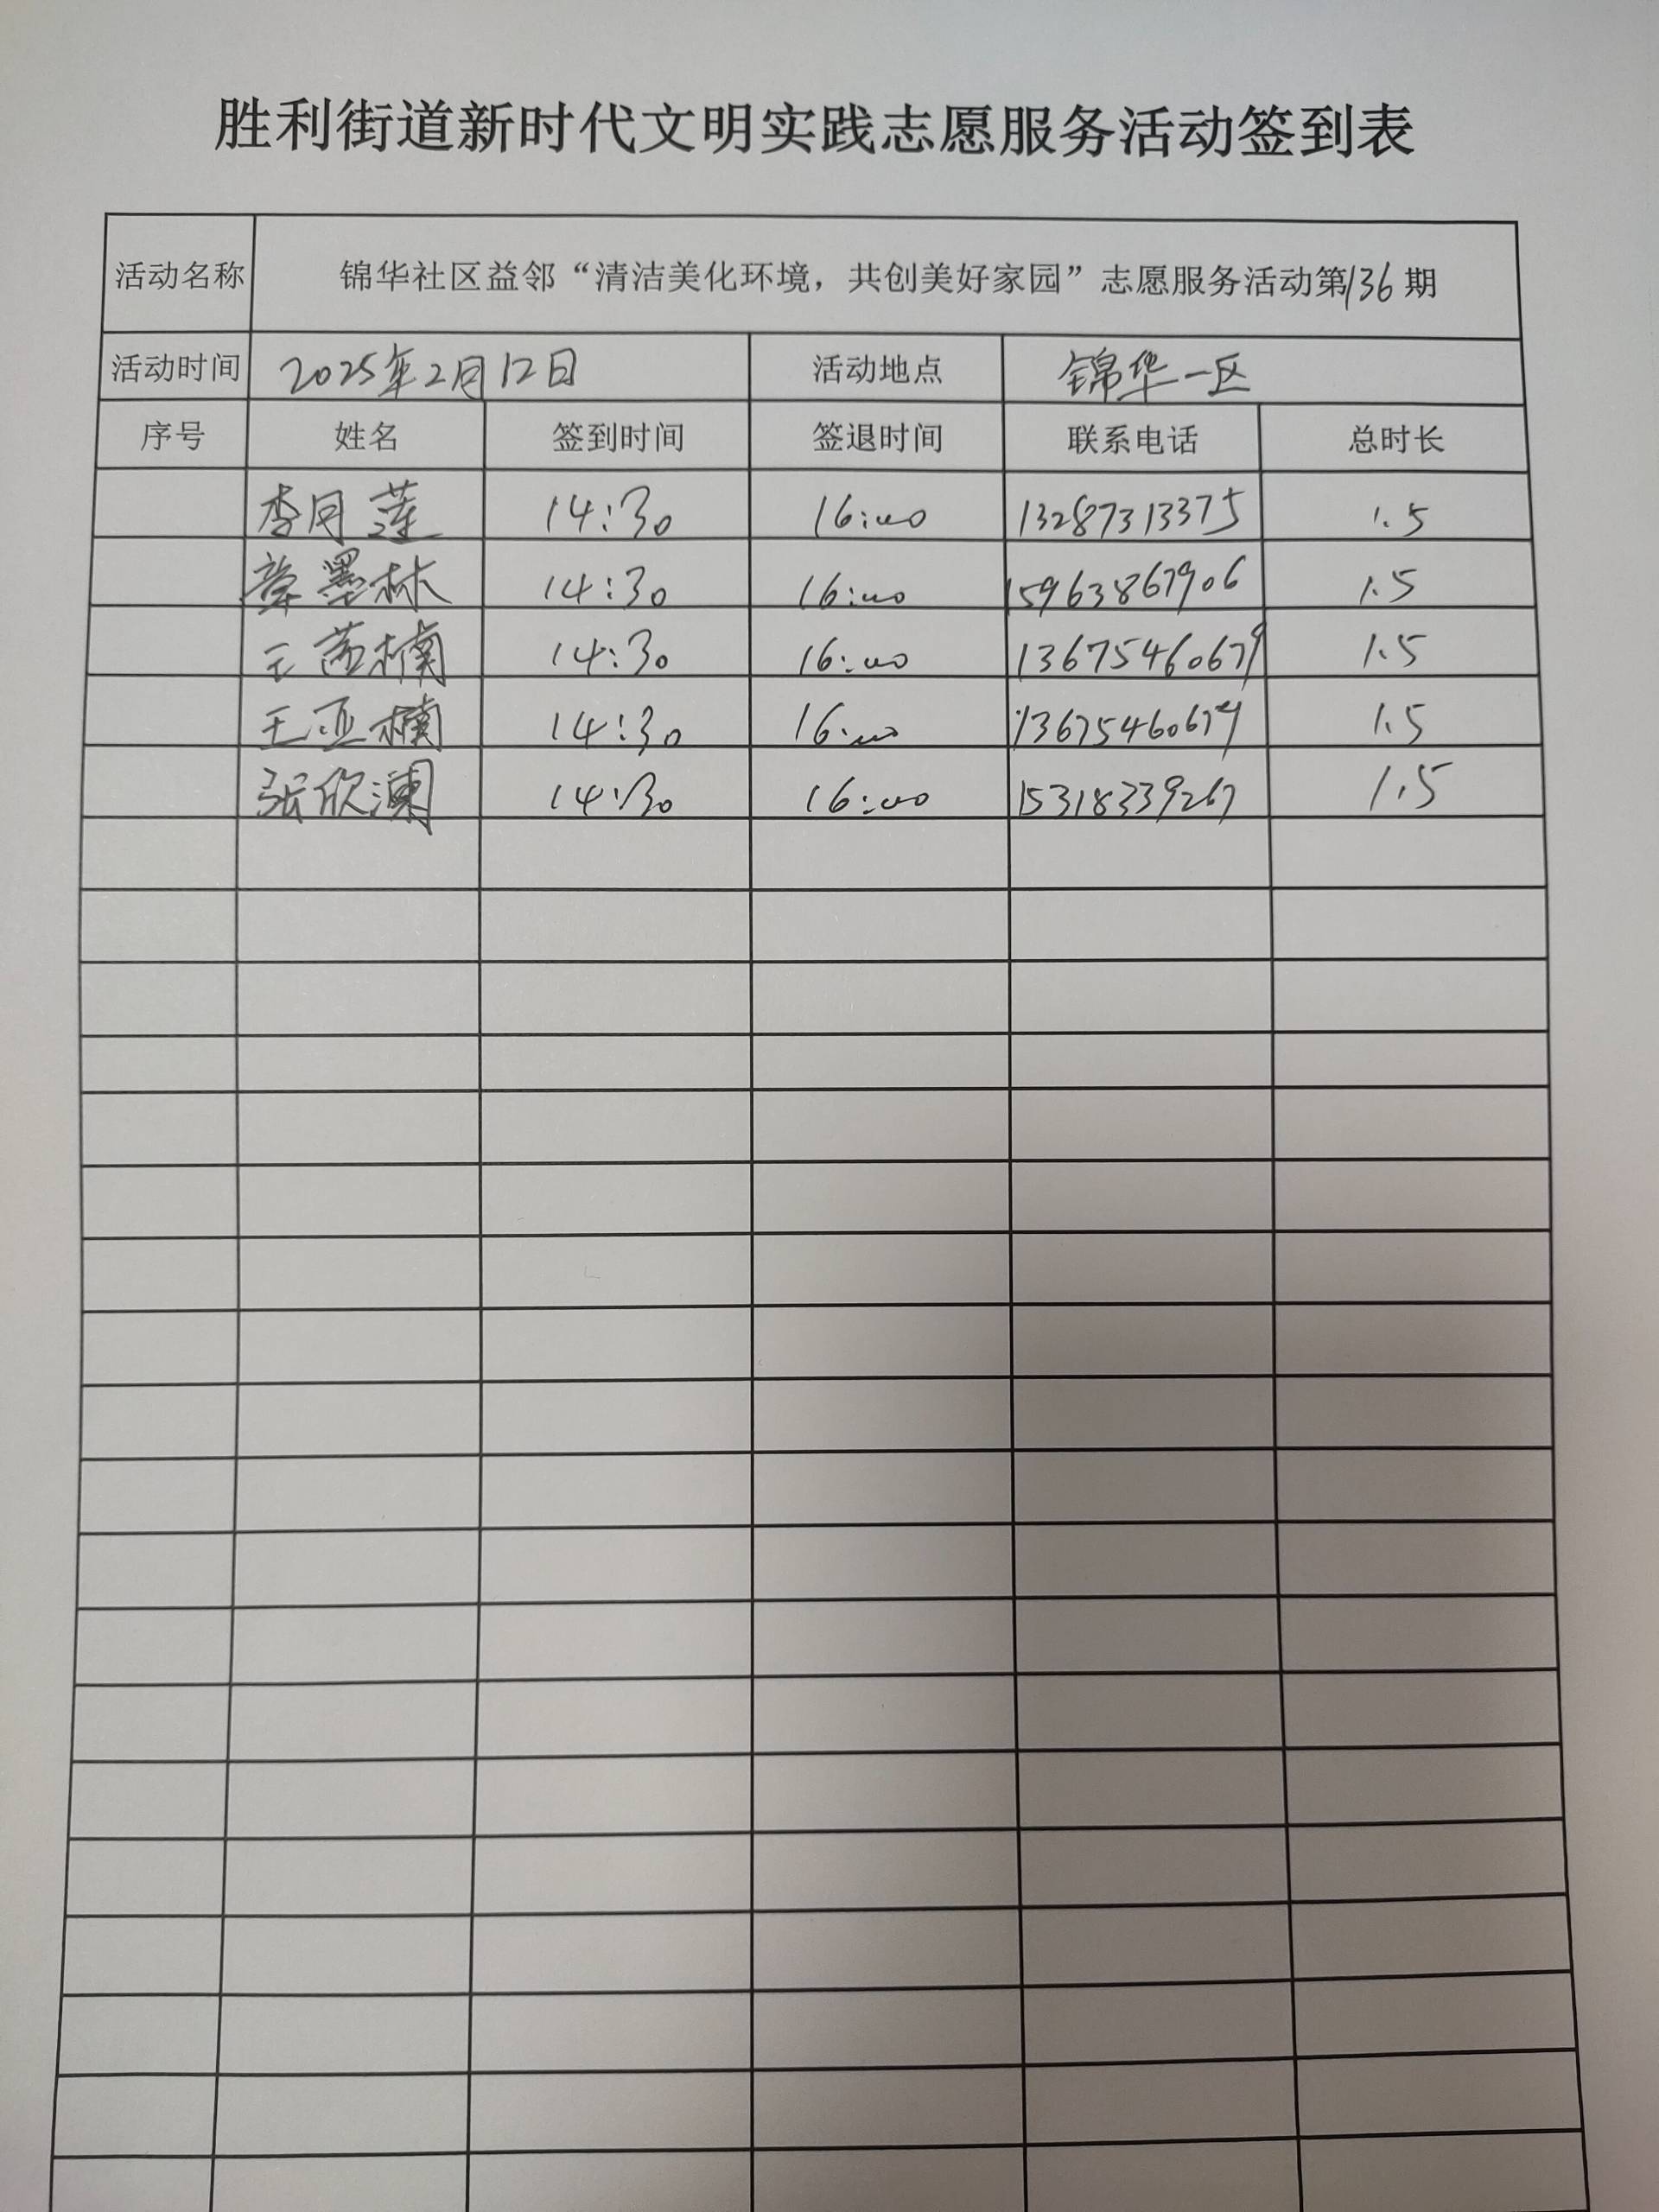 胜利街道新时代文明实践志愿服务活动签到表
活动名称 锦华社区益邻“清洁美化环境，共创美好家园”志愿服务活动第136期
活动时间 2025年2月12日 活动地点 锦华一区
序号 姓名 签到时间 签退时间 联系电话 总时长
李月莲 14:30 16:00 13287313375 1.5
章墨林 14:30 16:00 15963867906 1.5
王茜楠 14:30 16:00 13675460679 1.5
王亚楠 14:30 16:00 13675460679 1.5
张欣澜 14:30 16:00 15318339267 1.5